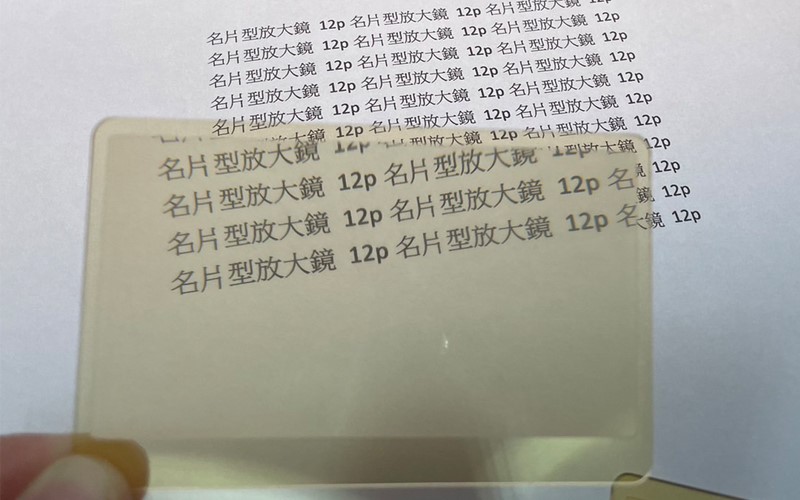 名片型放大鏡 12p 名片型放大鏡 12p 名片型放大鏡
名片型放大鏡 12p 名片型放大鏡 12p 名片型放大鏡 12p
名片型放大鏡 12p 名片型放大鏡 12p 名片型放大鏡 12p
名片型放大鏡 12p 名片型放大鏡 12p 名片型放大鏡 12p
名片型放大鏡 12p 名片型放大鏡 12p 名片型放大鏡 12p
名片型放大鏡 12p
名片型放大鏡 12p
12p
名片型放大鏡 12p 名片型放大鏡 12p
名片型放大鏡 12p 名片型放大鏡 12p 名 鏡 12p
名片型放大鏡 12p 名片型放大鏡 12p 名 鏡 12p
名片型放大鏡 12p 名片型放大鏡 12p 名 大鏡 12p